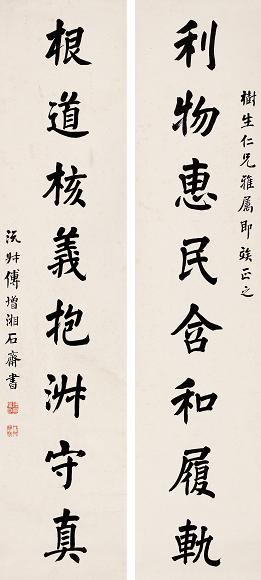 樹生仁兄雅屬即竢正之
利物惠民含和履軌
根道核義抱淑守真
沅叔傅增湘石齋書